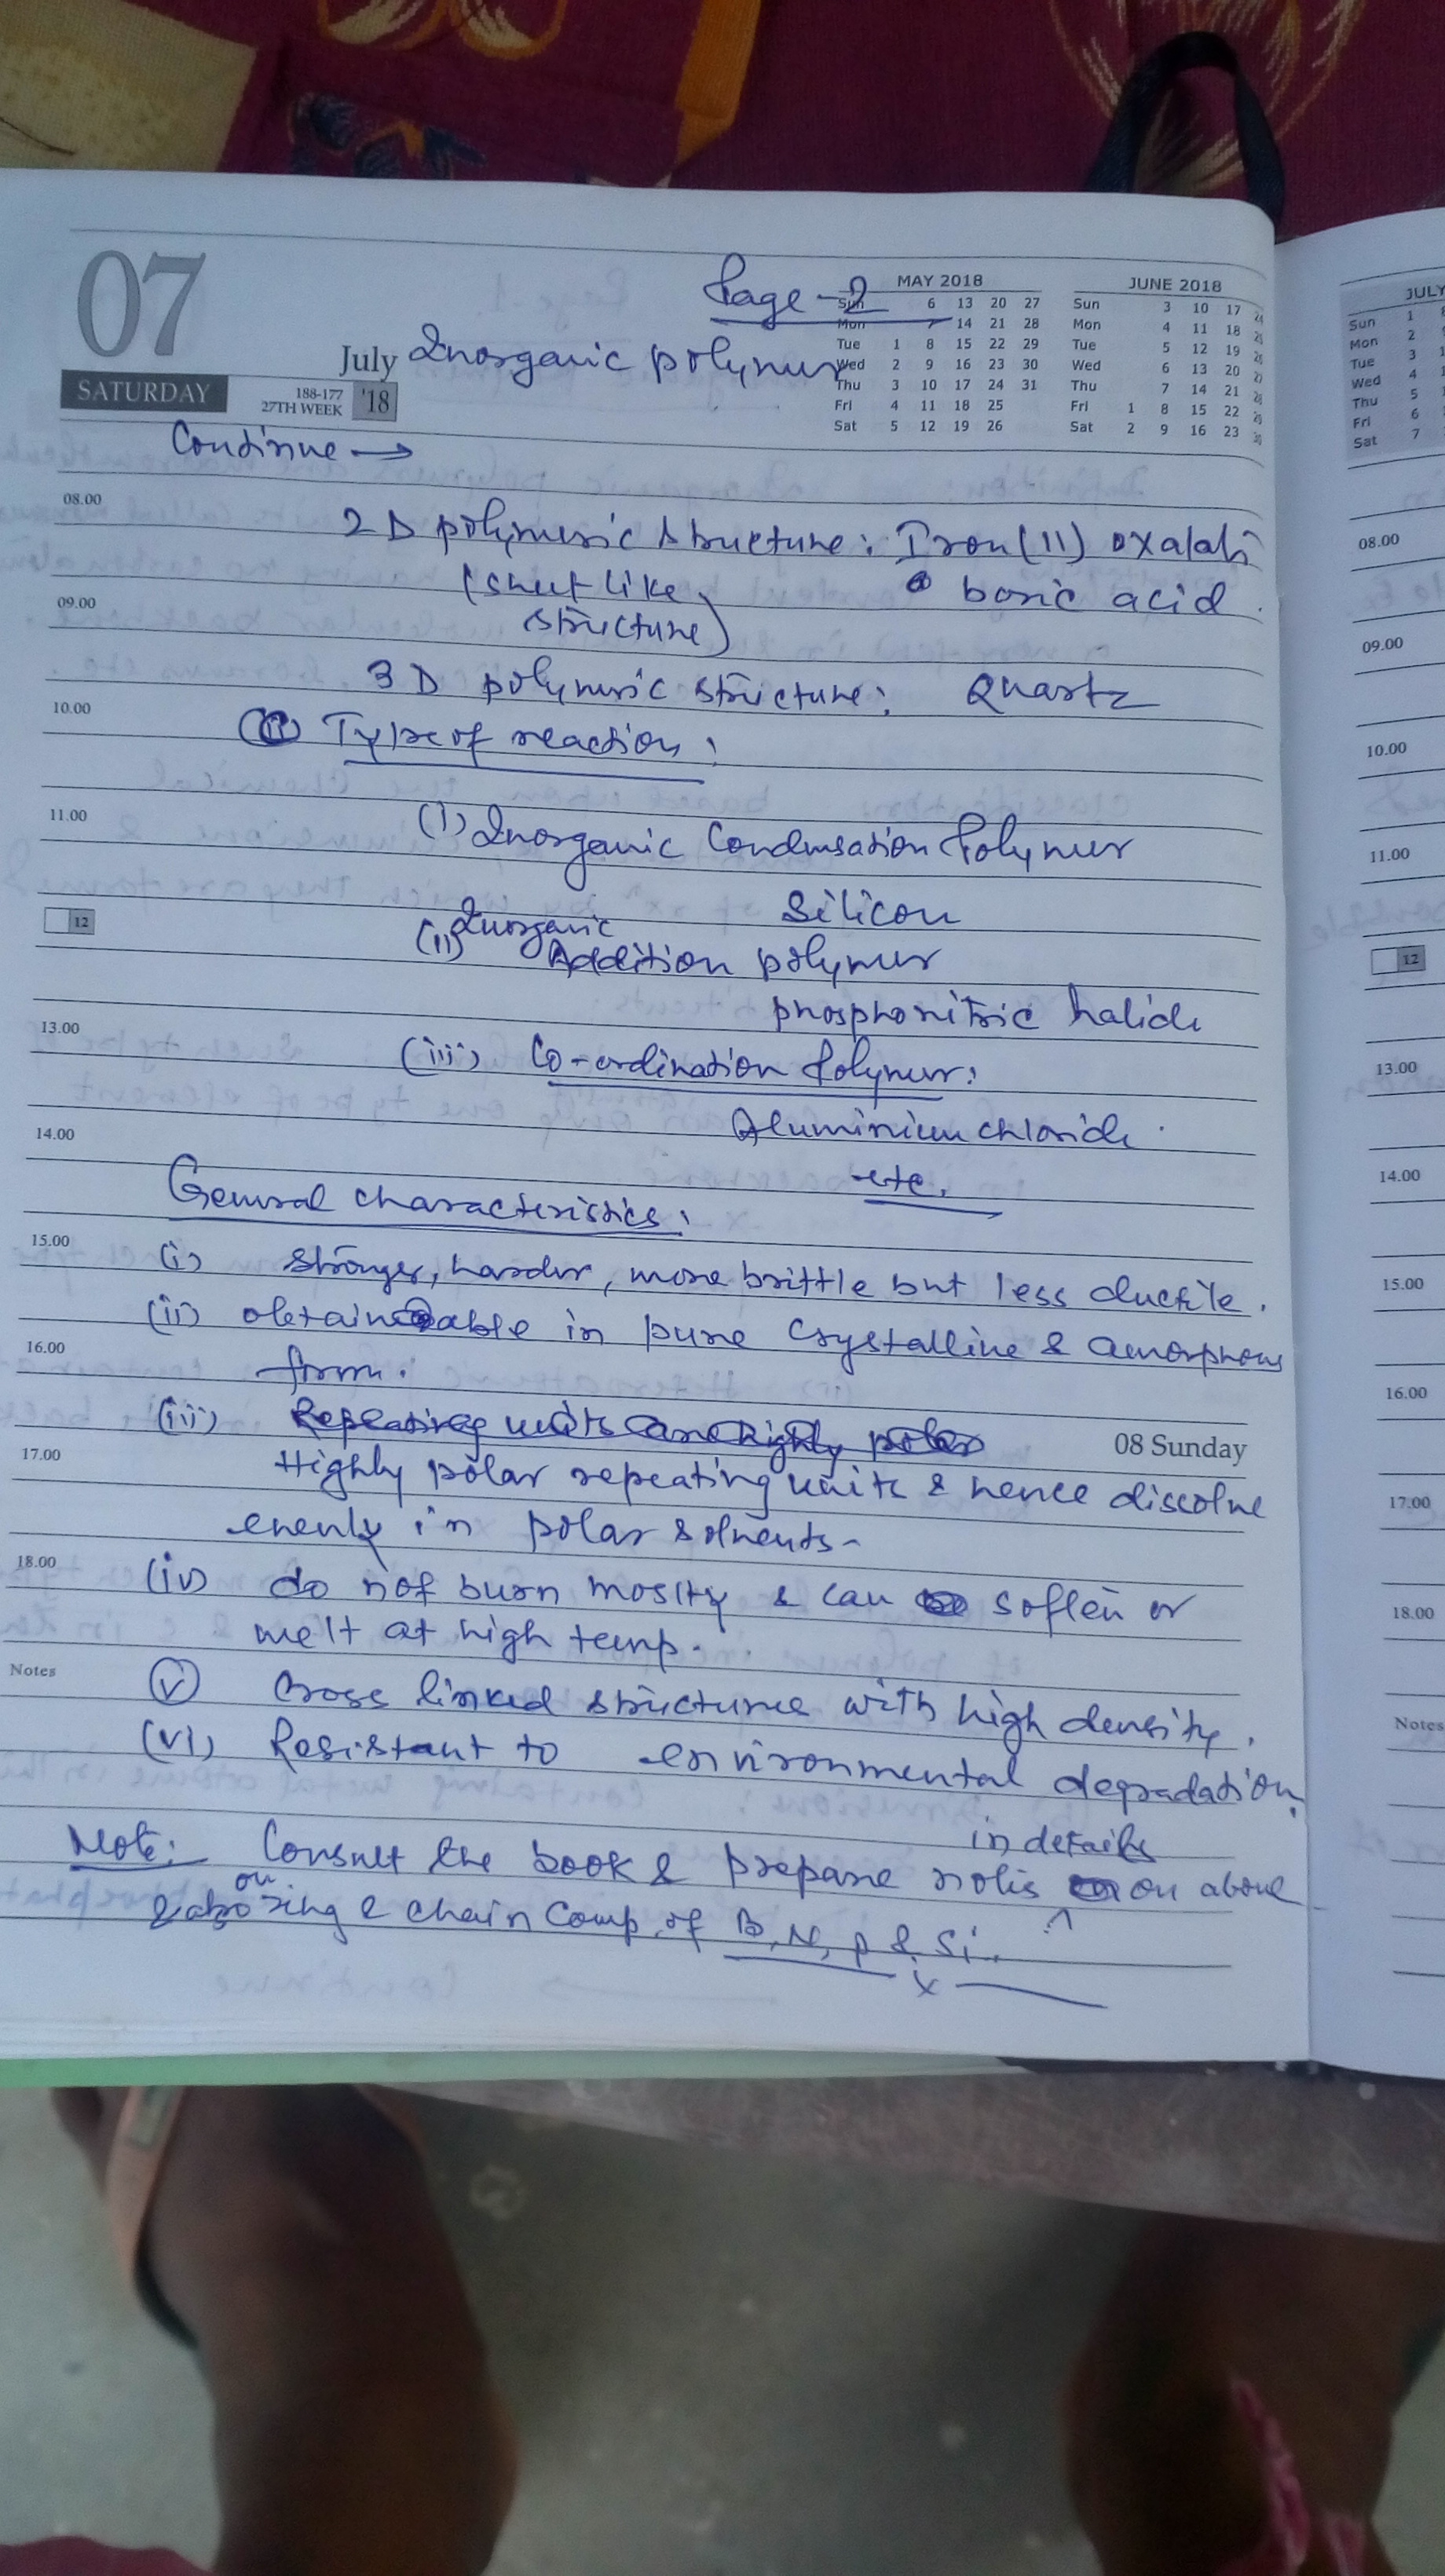 07
July
SATURDAY
188-177
27TH WEEK
'18
Page-2
MAY 2018
Sun 6 13 20 27
Mon 7 14 21 28
Tue 1 8 15 22 29
Wed 2 9 16 23 30
Thu 3 10 17 24 31
Fri 4 11 18 25
Sat 5 12 19 26
JUNE 2018
Sun 3 10 17 24
Mon 4 11 18
Tue 5 12 19
Wed 6 13 20
Thu 7 14 21
Fri 1 8 15 22
Sat 2 9 16 23
Inorganic polymer
Continue →
08.00
2D polymeric structure: Iron(II) oxalate
(sheet like boric acid.
09.00
structure)
3D polymeric structure: Quartz
10.00
Type of reaction:
11.00
(i) Inorganic Condensation Polymer
Silicon
12
(ii) Inorganic Addition polymer
phosphonitric halide
13.00
(iii) Co-ordination Polymer:
Aluminium chloride.
14.00
etc.
General characteristics:
15.00
(i) Stronger, harder, more brittle but less ductile.
(ii) obtainable in pure crystalline & amorphous
16.00
form.
(iii) Repeating units are highly polar
08 Sunday
17.00
Highly polar repeating units & hence dissolve
evenly in polar solvents-
18.00
(iv) do not burn mostly & can soften or
melt at high temp.
Notes
(v) Cross linked structures with high density.
(vi) Resistant to environmental degradation.
in details
Note: Consult the book & prepare notes on above
& also on ring & chain Comp. of B, N, P & Si.
x
JULY
Sun 1 8
Mon 2
Tue 3
Wed 4
Thu 5
Fri 6
Sat 7
08.00
09.00
10.00
11.00
12
13.00
14.00
15.00
16.00
17.00
18.00
Notes